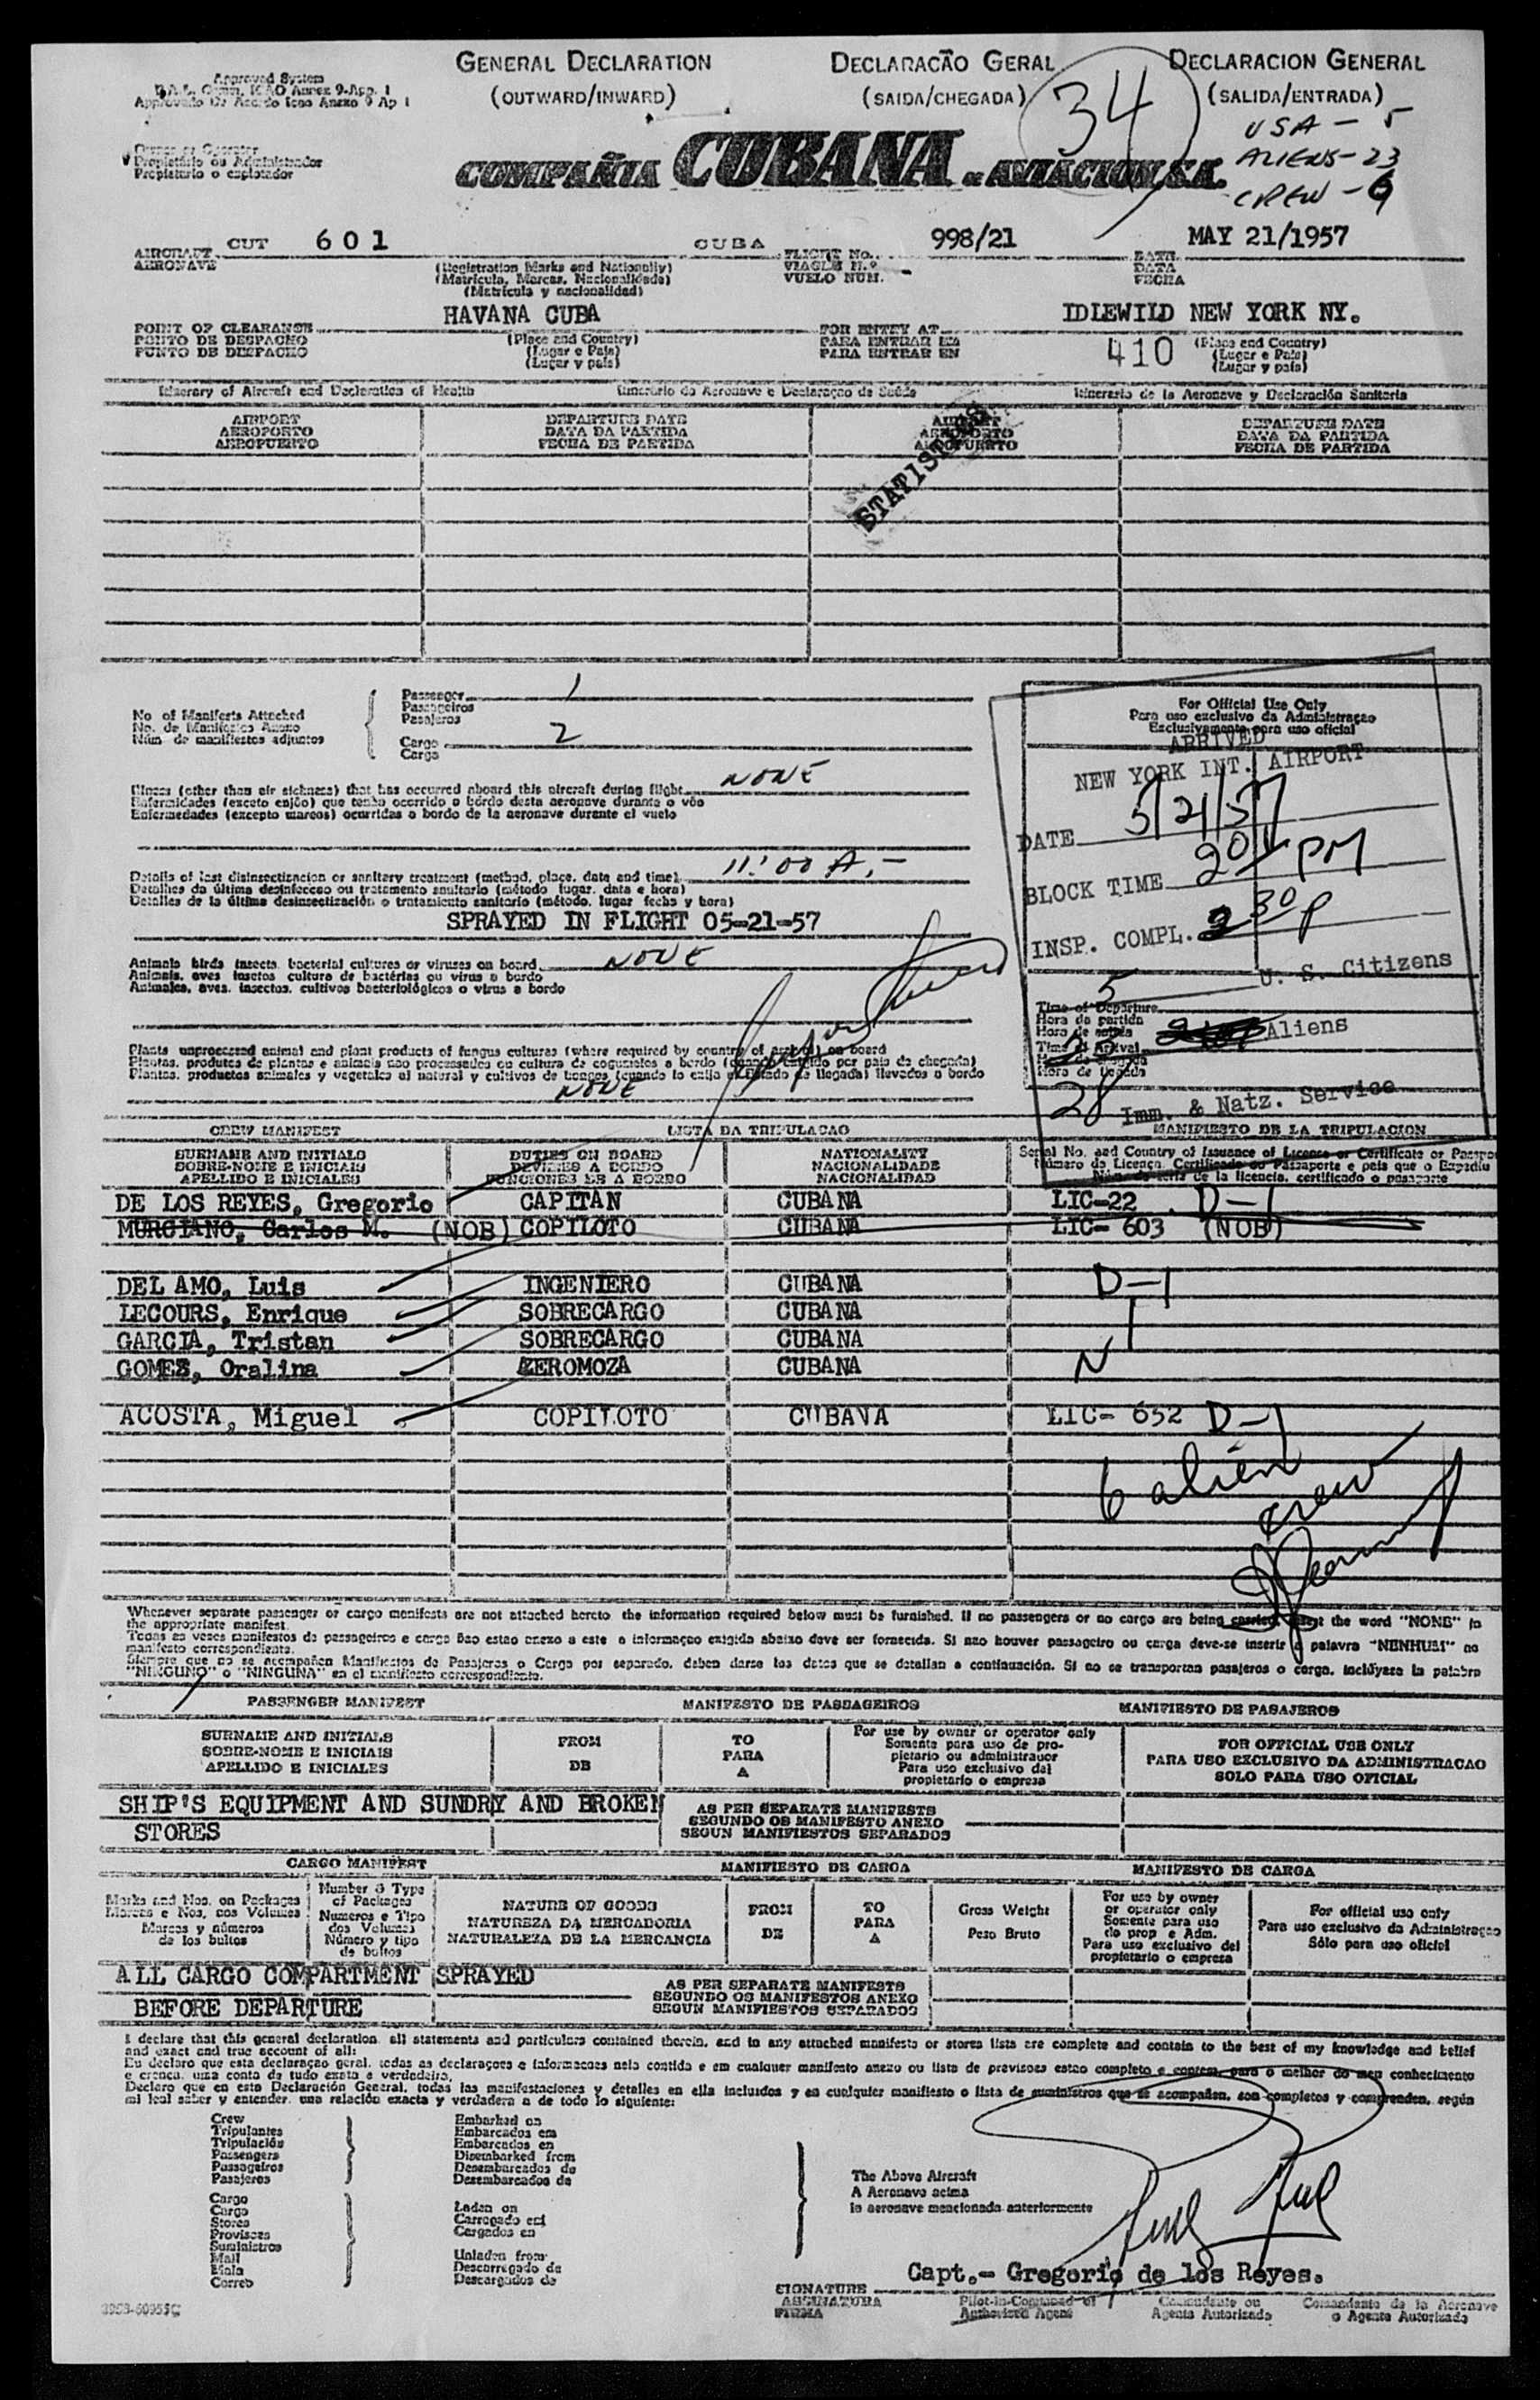 GENERAL DECLARATION
(OUTWARD/INWARD)
DECLARACÃO GERAL
(SAIDA/CHEGADA)
DECLARACION GENERAL
(SALIDA/ENTRADA)
34
USA - 5
ALIENS - 23
CREW - 6
Approved System
Owner or Operator
Propietário ou Administrador
Propietario o explotador
COMPAÑIA CUBANA DE AVIACION S.A.
AIRCRAFT CUT 601 CUBA FLIGHT No. 998/21 DATE MAY 21/1957
AERONAVE
VIAGEM N.º
VUELO NUM.
DATA
FECHA
(Registration Marks and Nationality)
(Matrícula, Marcas, Nacionalidade)
(Matrícula y nacionalidad)
POINT OF CLEARANCE HAVANA CUBA FOR ENTRY AT IDLEWILD NEW YORK NY.
PONTO DE DESPACHO
PUNTO DE DESPACHO
(Place and Country)
(Lugar e Pais)
(Lugar y pais)
PARA ENTRAR EM
PARA ENTRAR EN
410
(Place and Country)
(Lugar e Pais)
(Lugar y pais)
Itinerary of Aircraft and Declaration of Health
Itinerário da Aeronave e Declaraçao de Saúde
Itinerario de la Aeronave y Declaración Sanitaria
AIRPORT
AEROPORTO
AEROPUERTO
DEPARTURE DATE
DATA DA PARTIDA
FECHA DE PARTIDA
AIRPORT
AEROPORTO
AEROPUERTO
DEPARTURE DATE
DATA DA PARTIDA
FECHA DE PARTIDA
STATISTICS
No. of Manifests Attached
No. de Manifestos Anexo
Núm. de manifiestos adjuntos
Passenger 1
Passageiros
Pasajeros
Cargo 2
Carga
For Official Use Only
Para uso exclusivo da Administraçao
Exclusivamente para uso oficial
ARRIVED
NEW YORK INT. AIRPORT
DATE 5/21/57
BLOCK TIME 201 PM
INSP. COMPL. 2 30 P
5 U. S. Citizens
Aliens
28 Imm. & Natz. Service
Time of Departure
Hora da partida
Hora de salida
Time of Arrival
Illness (other than air sickness) that has occurred aboard this aircraft during flight NONE
Enfermidades (exceto enjôo) que tenha ocorrido a bordo desta aeronave durante o vôo
Enfermedades (excepto mareos) ocurridas a bordo de la aeronave durante el vuelo
Details of last disinsectizacion or sanitary treatment (method, place, date and time) 11:00 A.-
Detalhes da última desinfeccao ou tratamento sanitario (método lugar, data e hora)
Detalles de la última desinsectización o tratamiento sanitario (método, lugar fecha y hora)
SPRAYED IN FLIGHT 05-21-57
Animals birds insects bacterial cultures or viruses on board NONE
Animais, aves insetos cultura de bactérias ou virus a bordo
Animales, aves, insectos, cultivos bacteriológicos o virus a bordo
Plants unprocessed animal and plant products of fungus cultures (where required by country of arrival) on board
Plantas, produtos de plantas e animais nao processados ou cultura de cogumelos a bordo (quando exigido por pais de chegada)
Plantas, productos animales y vegetales al natural y cultivos de hongos (cuando lo exija el Estado de llegada) llevados a bordo
NONE
CREW MANIFEST
LISTA DA TRIPULACAO
MANIFIESTO DE LA TRIPULACION
SURNAME AND INITIALS
SOBRE-NOME E INICIAIS
APELLIDO E INICIALES
DUTIES ON BOARD
DEVERES A BORDO
FUNCIONES DE A BORDO
NATIONALITY
NACIONALIDADE
NACIONALIDAD
Serial No. and Country of Issuance of Licence or Certificate or Passpor
Número da Licença, Certificado ou Passaporte e pais que o Expediu
Núm. de serie de la licencia, certificado o pasaporte
DE LOS REYES, Gregorio CAPITAN CUBANA LIC-22 . D-1
MURCIANO, Carlos M. (NOB) COPILOTO CUBANA LIC- 603 (NOB)
DEL AMO, Luis INGENIERO CUBANA D-1
LECOURS, Enrique SOBRECARGO CUBANA
GARCIA, Tristan SOBRECARGO CUBANA
GOMEZ, Oralina AEROMOZA CUBANA
ACOSTA, Miguel COPILOTO CUBANA LIC- 652 D-1
6 alien
crew
Whenever separate passenger or cargo manifests are not attached hereto, the information required below must be furnished. If no passengers or no cargo are being carried, insert the word "NONE" in
the appropriate manifest.
Todas as vezes manifestos de passageiros e carga nao estao anexo a este a informaçao exigida abaixo deve ser fornecida. Si nao houver passageiro ou carga deve-se inserir a palavra "NENHUM" no
manifesto correspondiente.
Siempre que no se acompañen Manifiestos de Pasajeros o Carga por separado, deben darse los datos que se detallan a continuación. Si no se transportan pasajeros o carga, inclúyase la palabra
"NINGUNO" o "NINGUNA" en el manifiesto correspondiente.
PASSENGER MANIFEST
MANIFESTO DE PASSAGEIROS
MANIFIESTO DE PASAJEROS
SURNAME AND INITIALS
SOBRE-NOME E INICIAIS
APELLIDO E INICIALES
FROM
DE
TO
PARA
A
For use by owner or operator only
Somente para uso de pro-
pietario ou administrador
Para uso exclusivo del
propietario o empresa
FOR OFFICIAL USE ONLY
PARA USO EXCLUSIVO DA ADMINISTRACAO
SOLO PARA USO OFICIAL
SHIP'S EQUIPMENT AND SUNDRY AND BROKEN
STORES
AS PER SEPARATE MANIFESTS
SEGUNDO OS MANIFESTO ANEXO
SEGUN MANIFIESTOS SEPARADOS
CARGO MANIFEST
MANIFIESTO DE CARGA
MANIFESTO DE CARGA
Marks and Nos. on Packages
Marcas e Nos. dos Volumes
Marcas y números
de los bultos
Number & Type
of Packages
Numeros e Tipo
dos Volumes
Número y tipo
de bultos
NATURE OF GOODS
NATUREZA DA MERCADORIA
NATURALEZA DE LA MERCANCIA
FROM
DE
TO
PARA
A
Gross Weight
Peso Bruto
For use by owner
or operator only
Somente para uso
do prop e Adm.
Para uso exclusivo del
propietario o empresa
For official use only
Para uso exclusivo da Administraçao
Sólo para uso oficial
ALL CARGO COMPARTMENT SPRAYED
BEFORE DEPARTURE
AS PER SEPARATE MANIFESTS
SEGUNDO OS MANIFESTOS ANEXO
SEGUN MANIFIESTOS SEPARADOS
I declare that this general declaration, all statements and particulars contained therein, and in any attached manifests or stores lists are complete and contain to the best of my knowledge and belief
and exact and true account of all:
Eu declaro que esta declaraçao geral, todas as declaraçoes e informacoes nela contida e em cualquer manifesto anexo ou lista de provisoes estao completo e contem, para o melhor do meu conhecimento
e crenca, uma conta de tudo exata e verdadeira.
Declaro que en esta Declaración General, todas las manifestaciones y detalles en ella incluidos y en cualquier manifiesto o lista de suministros que se acompañan, son completos y comprenden, según
mi leal saber y entender, una relación exacta y verdadera a de todo lo siguiente:
Crew
Tripulantes
Tripulación
Passengers
Passageiros
Pasajeros
Embarked on
Embarcados em
Embarcados en
Disembarked from
Desembarcados de
Desembarcados de
Cargo
Carga
Stores
Provisoes
Suministros
Mail
Mala
Correo
Laden on
Carregado em
Cargados en
Unladen from
Descarregado de
Descargados de
The Above Aircraft
A Aeronave acima
la aeronave mencionada anteriormente
Capt.- Gregorio de los Reyes.
SIGNATURE
ASSINATURA
FIRMA
Pilot-in-Command or
Authorized Agent
Comandante ou
Agente Autorizado
Comandante de la Aeronave
o Agente Autorizado